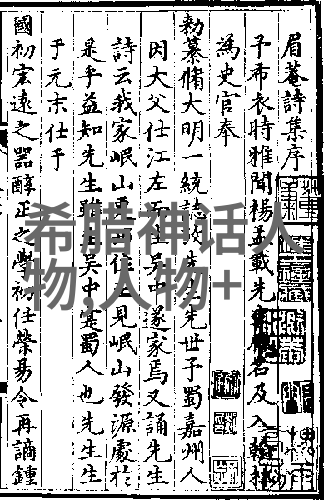 眉菴詩集序
予布衣時雅聞楊孟載先名及入翰林
為史官奉
勑纂脩大明一統誌先世予蜀嘉州人
因大父仕江左而生吳中遂家焉又誦先生
詩云我家岷山更西住正見岷山發源處於
是乎益知先生雖生吳中寔蜀人也先生生
于元末仕于
國初宏遠之器醇正之學初任滎昜令再謫鍾
希腊神话人
物,人物+